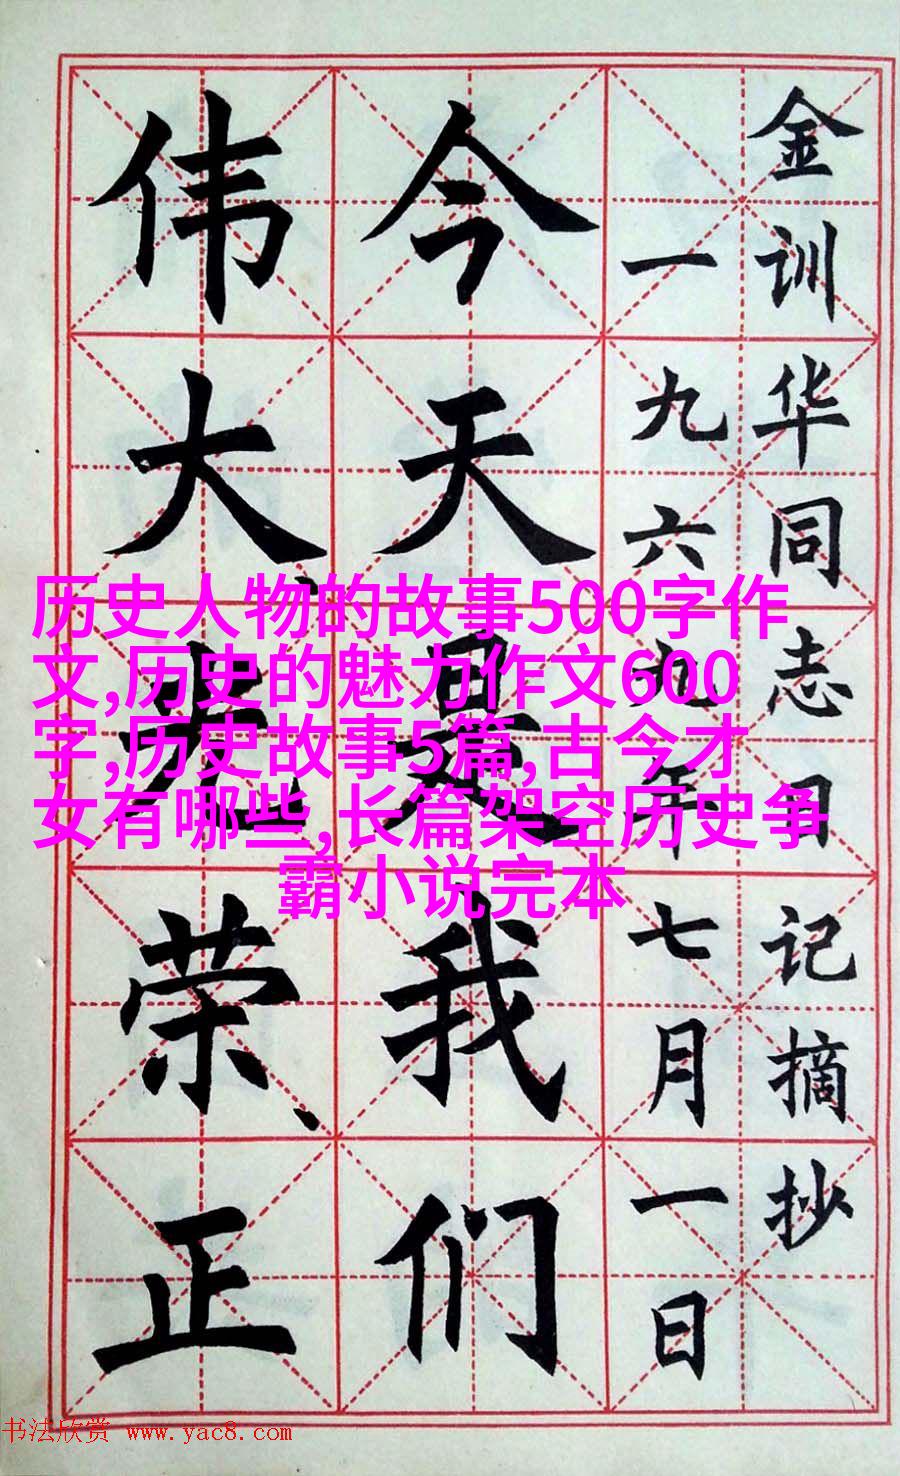 金训华同志日记摘抄
一九六九年七月一日
今天是我们
伟大、光荣、正
历史人物的故事500字作
文,历史的魅力作文600
字,历史故事5篇,古今才
女有哪些,长篇架空历史争
霸小说完本
书法欣赏 www.yac8.com